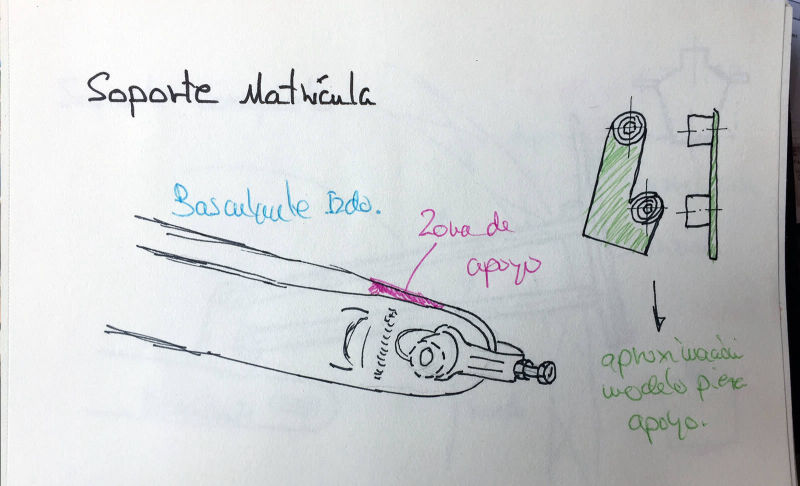 Soporte Matrícula
Basculante Izdo.
Zona de
apoyo
aproximación
modelo pieza
apoyo.